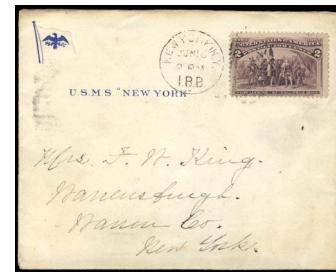 NEW YORK, N.Y.
JUN
I.B.B.
2 2
U.S.M.S. "NEW YORK"
Mrs. F. W. King.
Warrensburgh.
Warren Co.
New York.